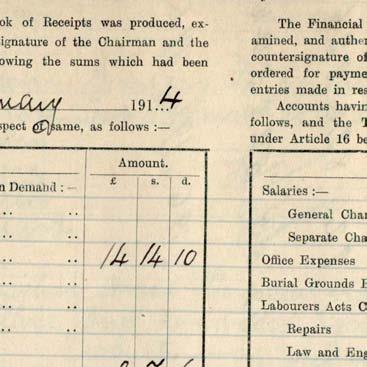 ok of Receipts was produced, ex-
ignature of the Chairman and the
owing the sums which had been
nuary 1914
spect of same, as follows :—
Amount.
£ s. d.
n Demand : –
14 14 10
The Financial
amined, and authen
countersignature of
ordered for payme
entries made in res
Accounts havin
follows, and the T
under Article 16 be
Salaries :—
General Char
Separate Cha
Office Expenses
Burial Grounds E
Labourers Acts C
Repairs
Law and Eng